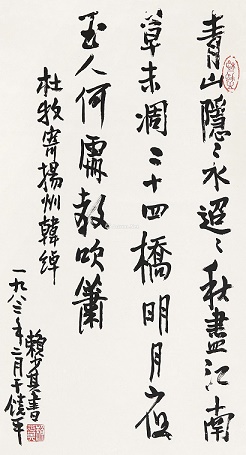 青山隱々水迢々秋盡江南
草未凋二十四橋明月夜
玉人何處教吹簫
杜牧寄揚州韓綽
賴少其書
一九八三年二月于饒平